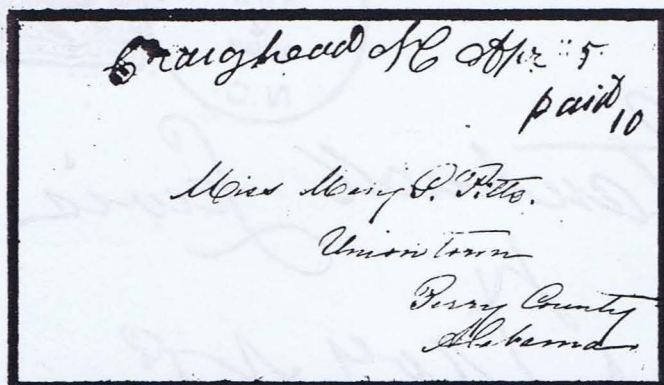 Craighead NC Apr 5
paid 10
Miss Mary P. Pitts.
Uniontown
Perry County
Alabama